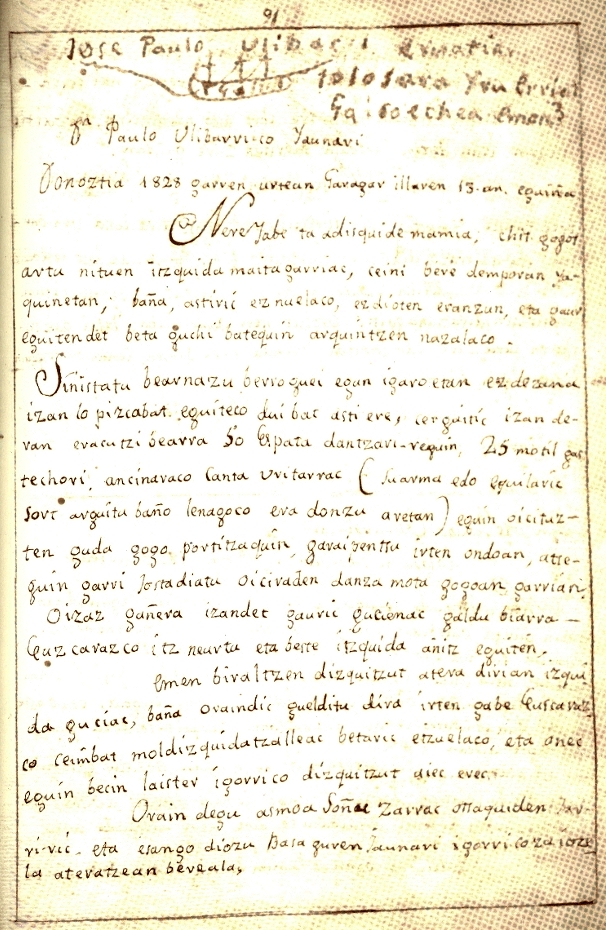 91
Jose Paulo Ulibarri
Tolosara Yru Errien
D.n Paulo Ulibarrico Jaunari
Donoztia 1828 garren urtean Garagar illaren 13. an. eguiña
Nere Jabe ta adisquide mamia, chit gogot
artu nituen itzquida maitagarriac, ceini bere demporan ja-
quinetan, baña, astiric eznuelaco, ezdioten eranzun, eta gaur
eguitendet beta guchi batequin arquintzen nazalaco.
Siñistatu bearnazu berroguei egun igaroetan ezdezana
izan lo pizcabat eguiteco dui bac asti ere, cerguitic izan de-
ran eracutzi bearra 50 Espata dantzari-requin, 25 motil gas
techori, ancinaraco Canta Uritarrac (Suarma edo eguilaric
sort arguitu baño lenagoco era donzu aretan) eguin oicituz-
ten guda gogo portitzaquin, garaipenttu irten ondoan, atse-
guin garri Jostadiatu oiciraden danza mota gogoan garriari.
Oizaz gañera izandet gauric gucienac galdu biarra -
Euzcarazco itz neurtu eta beste itzquida anitz eguiten.
Emen biraltzen dizquitzut atera dirian izqui
da guciac, baña oraindic guelditu dira irten gabe Euscaraz
co ceimbat moldizquidatzalleac betaric etzuelaco, eta onec
eguin becin laister igorrico dizquitzut aiec erec.
Orain degu asmoa Soñu Zarrac ottaquiden Bar-
ri-ric. eta esango diozu Basaguren Jaunari igorricozaioze
la ateratzean bereala,